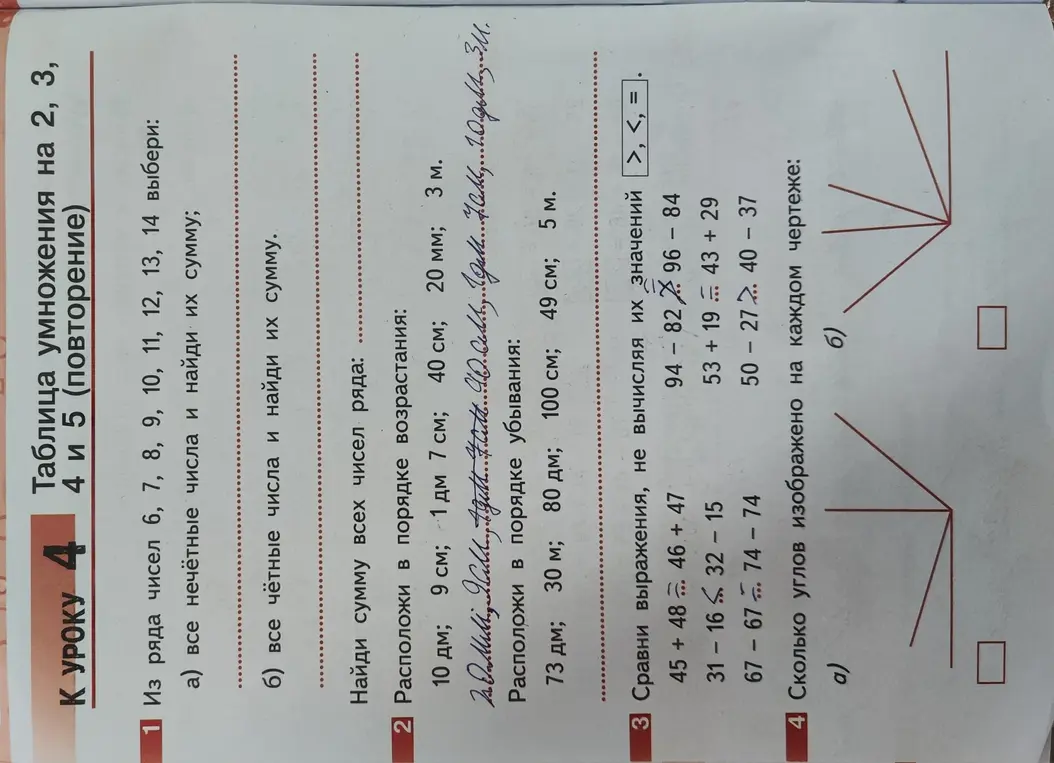 К уроку 4
Таблица умножения на 2, 3,
4 и 5 (повторение)
1 Из ряда чисел 6, 7, 8, 9, 10, 11, 12, 13, 14 выбери:
а) все нечётные числа и найди их сумму;
б) все чётные числа и найди их сумму.
Найди сумму всех чисел ряда:
2 Расположи в порядке возрастания:
10 дм; 9 см; 1 дм 7 см; 40 см; 20 мм; 3 м.
20мм, 9см, 1дм 7см 40см, 1дм 7см, 10дм, 3м.
Расположи в порядке убывания:
73 дм; 30 м; 80 дм; 100 см; 49 см; 5 м.
3 Сравни выражения, не вычисляя их значений >, <, = .
45 + 48 = 46 + 47 94 – 82 = 96 – 84
31 – 16 < 32 – 15 53 + 19 = 43 + 29
67 – 67 = 74 – 74 50 – 27 > 40 – 37
4 Сколько углов изображено на каждом чертеже:
а) б)